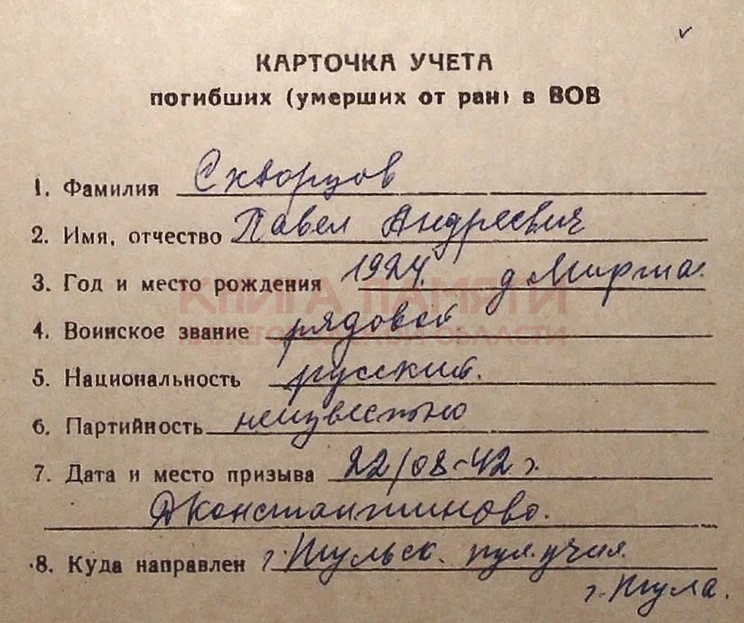 КАРТОЧКА УЧЕТА
погибших (умерших от ран) в ВОВ
1. Фамилия Скворцов
2. Имя, отчество Павел Андреевич
3. Год и место рождения 1924 д. Мирша.
КНИГА ПАМЯТИ
НИЖЕГОРОДСКОЙ ОБЛАСТИ
4. Воинское звание рядовой
5. Национальность русский.
6. Партийность неизвестно
7. Дата и место призыва 22/08-42 г.
ДКонстантиново.
8. Куда направлен г. Тульск. пул. учил.
г. Тула.